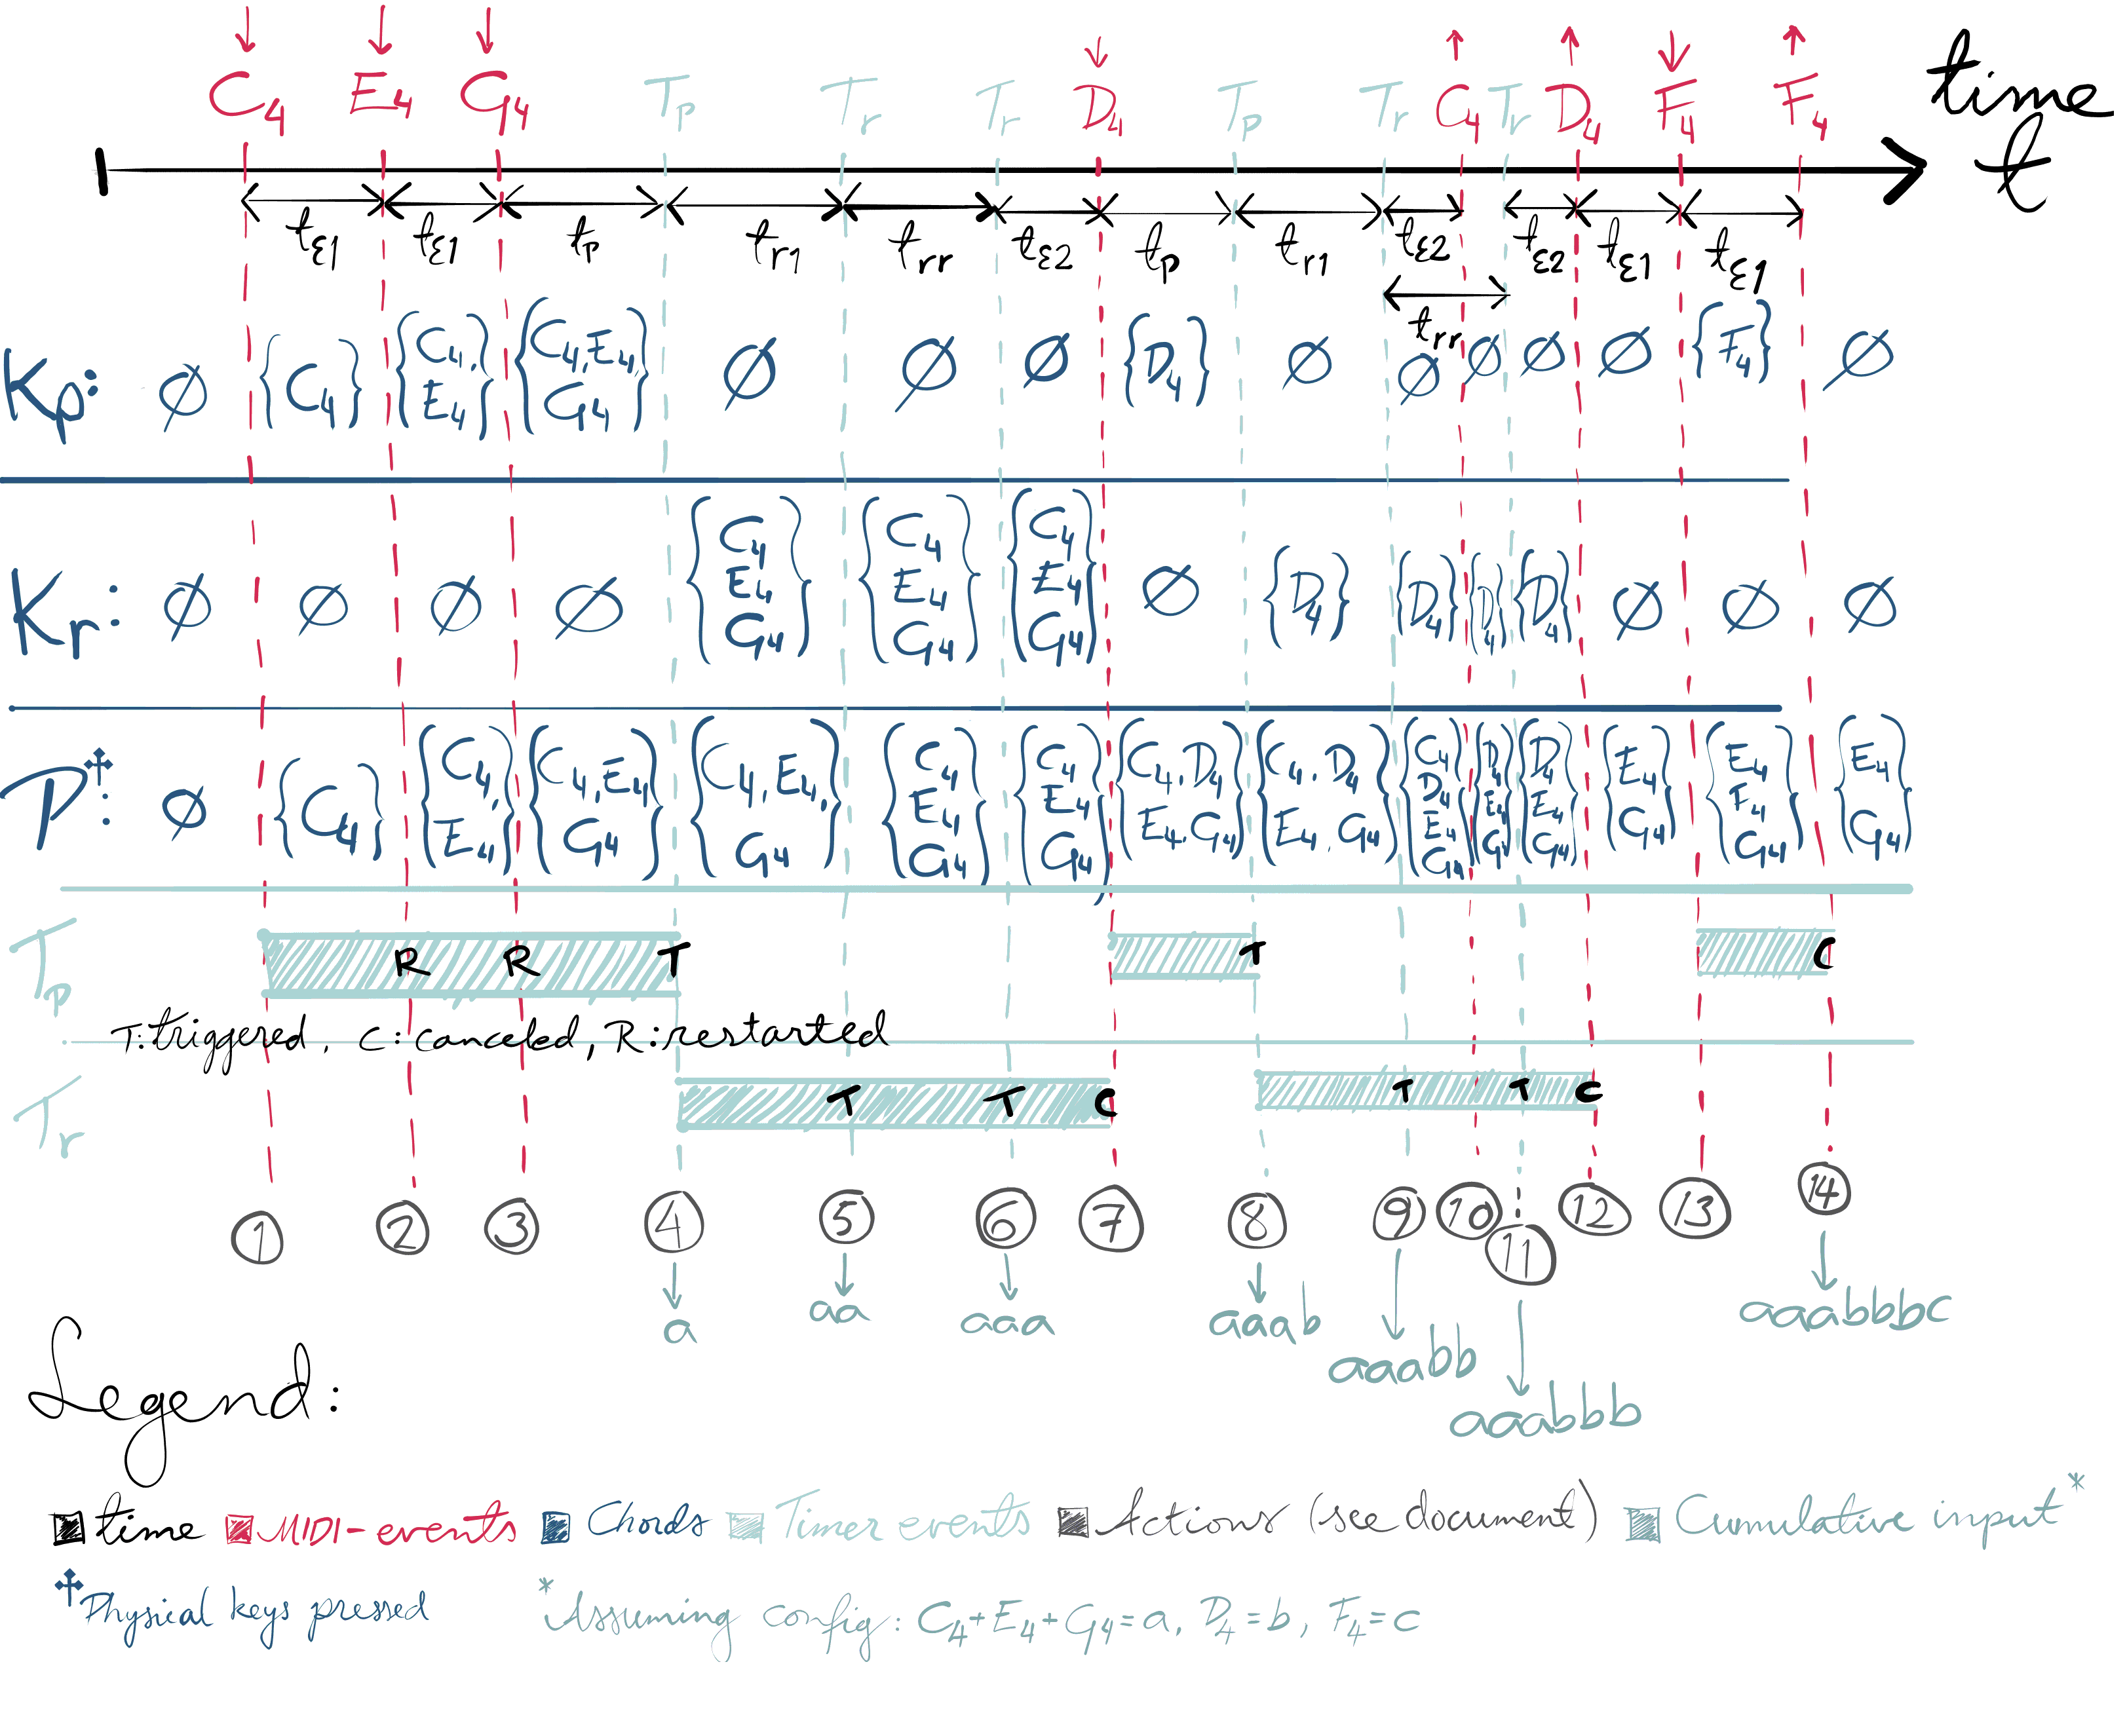 ↓ ↓ ↓ ↓ ↑ ↑ ↓ ↑
C4 E4 G4 Tp Tr Tr D4 Tp Tr C4 Tr D4 F4 F4 time
t
tε1 tε1 tp tr1 trr tε2 tp tr1 tε2 tε2 tε1 tε1
trr
Kp: ∅ {C4} {C4, E4} {C4,E4, G4} ∅ ∅ ∅ {D4} ∅ ∅ ∅ ∅ ∅ {F4} ∅
Kr: ∅ ∅ ∅ ∅ {C4 E4 G4} {C4 E4 G4} {C4 E4 G4} ∅ {D4} {D4} {D4} {D4} ∅ ∅ ∅
P†: ∅ {C4} {C4, E4} {C4,E4 G4} {C4, E4, G4} {C4 E4 G4} {C4 E4 G4} {C4,D4 E4,G4} {C4,D4 E4,G4} {C4 D4 E4 G4} {D4 E4 G4} {D4 E4 G4} {E4 G4} {E4 F4 G4} {E4 G4}
Tp R R T T C
T:triggered, C:canceled, R:restarted
Tr T T C T T C
1 2 3 4 5 6 7 8 9 10 11 12 13 14
a aa aaa aaab aaabb aaabbb aaabbbc
Legend:
time MIDI-events Chords Timer events Actions (see document) Cumulative input*
†Physical keys pressed *Assuming config: C4+E4+G4=a, D4=b, F4=c